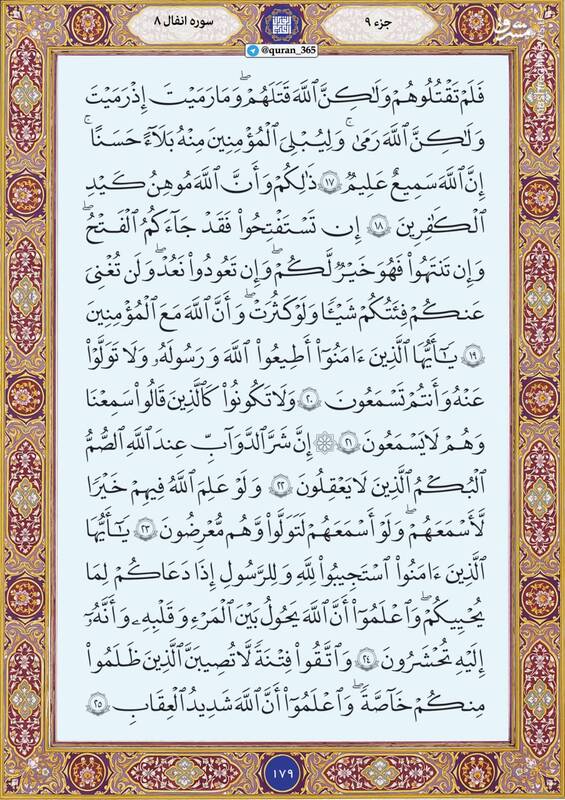 جزء ۹
سوره انفال ۸
@quran_365
مشرق
فَلَمْ تَقْتُلُوهُمْ وَلَٰكِنَّ ٱللَّهَ قَتَلَهُمْ ۚ وَمَا رَمَيْتَ إِذْ رَمَيْتَ
وَلَٰكِنَّ ٱللَّهَ رَمَىٰ ۚ وَلِيُبْلِىَ ٱلْمُؤْمِنِينَ مِنْهُ بَلَآءً حَسَنًا ۚ
إِنَّ ٱللَّهَ سَمِيعٌ عَلِيمٌ ۱۷ ذَٰلِكُمْ وَأَنَّ ٱللَّهَ مُوهِنُ كَيْدِ
ٱلْكَٰفِرِينَ ۱۸ إِن تَسْتَفْتِحُوا۟ فَقَدْ جَآءَكُمُ ٱلْفَتْحُ ۖ
وَإِن تَنتَهُوا۟ فَهُوَ خَيْرٌ لَّكُمْ ۖ وَإِن تَعُودُوا۟ نَعُدْ وَلَن تُغْنِىَ
عَنكُمْ فِئَتُكُمْ شَيْـًٔا وَلَوْ كَثُرَتْ وَأَنَّ ٱللَّهَ مَعَ ٱلْمُؤْمِنِينَ
۱۹ يَٰٓأَيُّهَا ٱلَّذِينَ ءَامَنُوٓا۟ أَطِيعُوا۟ ٱللَّهَ وَرَسُولَهُۥ وَلَا تَوَلَّوْا۟
عَنْهُ وَأَنتُمْ تَسْمَعُونَ ۲۰ وَلَا تَكُونُوا۟ كَٱلَّذِينَ قَالُوا۟ سَمِعْنَا
وَهُمْ لَا يَسْمَعُونَ ۲۱ ۞ إِنَّ شَرَّ ٱلدَّوَآبِّ عِندَ ٱللَّهِ ٱلصُّمُّ
ٱلْبُكْمُ ٱلَّذِينَ لَا يَعْقِلُونَ ۲۲ وَلَوْ عَلِمَ ٱللَّهُ فِيهِمْ خَيْرًا
لَّأَسْمَعَهُمْ ۖ وَلَوْ أَسْمَعَهُمْ لَتَوَلَّوا۟ وَّهُم مُّعْرِضُونَ ۲۳ يَٰٓأَيُّهَا
ٱلَّذِينَ ءَامَنُوا۟ ٱسْتَجِيبُوا۟ لِلَّهِ وَلِلرَّسُولِ إِذَا دَعَاكُمْ لِمَا
يُحْيِيكُمْ ۖ وَٱعْلَمُوٓا۟ أَنَّ ٱللَّهَ يَحُولُ بَيْنَ ٱلْمَرْءِ وَقَلْبِهِۦ وَأَنَّهُۥٓ
إِلَيْهِ تُحْشَرُونَ ۲۴ وَٱتَّقُوا۟ فِتْنَةً لَّا تُصِيبَنَّ ٱلَّذِينَ ظَلَمُوا۟
مِنكُمْ خَآصَّةً ۖ وَٱعْلَمُوٓا۟ أَنَّ ٱللَّهَ شَدِيدُ ٱلْعِقَابِ ۲۵
۱۷۹